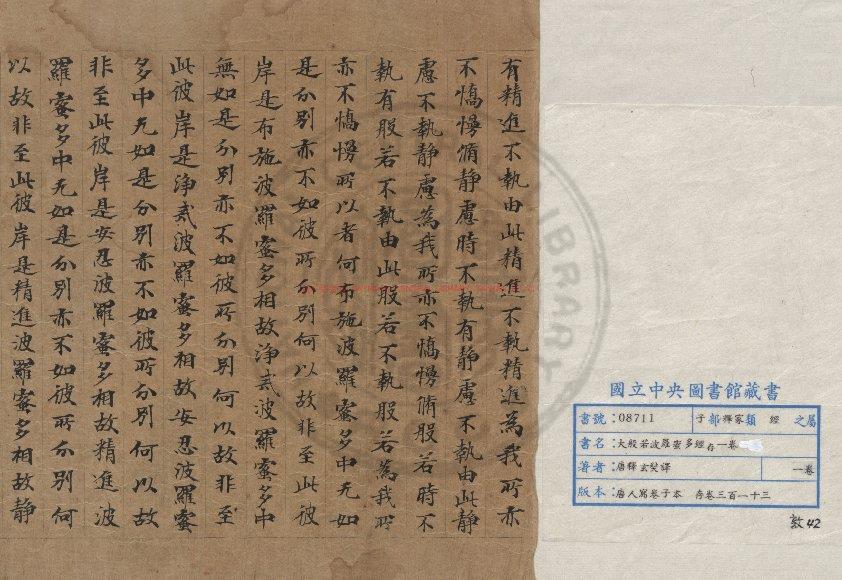 有精進不執由此精進不執精進為我所亦
不憍慢脩静慮時不執有静慮不執由此静
慮不執静慮為我所亦不憍慢脩般若時不
執有般若不執由此般若不執般若為我所
亦不憍慢所以者何布施波羅蜜多中无如
是分别亦不如彼所分别何以故非至此彼
岸是布施波羅蜜多相故淨貳波羅蜜多中
無如是分别亦不如彼所分别何以故非至
此彼岸是淨貳波羅蜜多相故安忍波羅蜜
多中无如是分别亦不如彼所分别何以故
非至此彼岸是安忍波羅蜜多相故精進波
羅蜜多中无如是分别亦不如彼所分别何
以故非至此彼岸是精進波羅蜜多相故静
國立中央圖書館藏書
書號:08711 子部釋家類 經 之屬
書名:大般若波羅蜜多經存一卷
著者:唐釋玄奘譯 一卷
版本:唐人寫卷子本 存卷三百一十三
敦42
LIBRARY